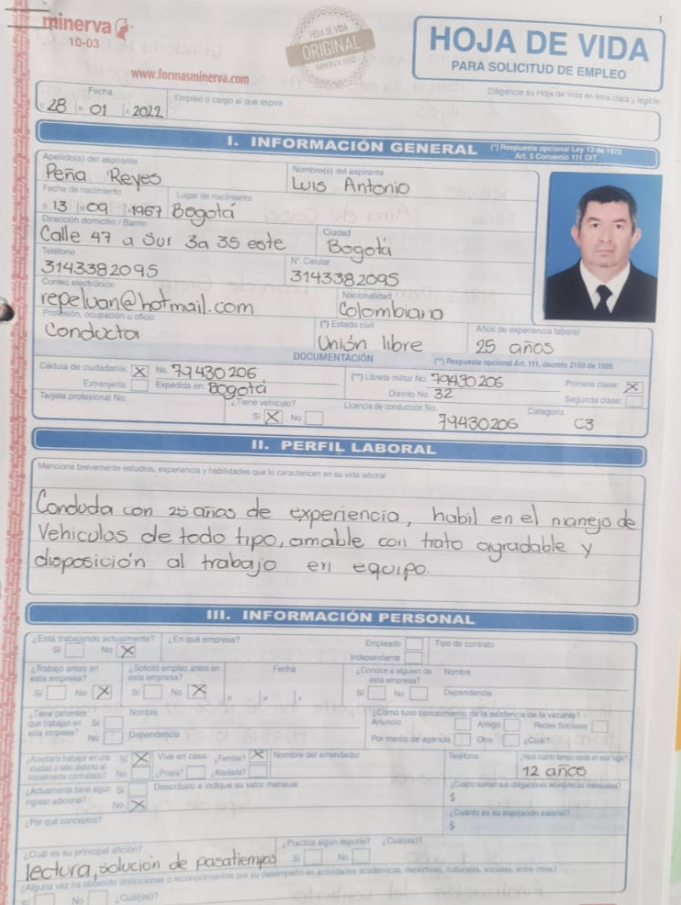 minerva
10-03
HOJA DE VIDA
ORIGINAL
MINERVA 1002
1
HOJA DE VIDA
PARA SOLICITUD DE EMPLEO
www.formasminerva.com
Diligencie su Hoja de Vida en letra clara y legible
Fecha
Empleo o cargo al que aspira
28 01 2022
I. INFORMACIÓN GENERAL
(*) Respuesta opcional Ley 13 de 1972
Art. 5 Convenio 111 OIT
Apellido(s) del aspirante
Nombre(s) del aspirante
Peña Reyes
Luis Antonio
Fecha de nacimiento
Lugar de nacimiento
13 09 1967 Bogotá
Dirección domicilio / Barrio
Ciudad
Calle 47 a Sur 3a 35 este
Bogotá
Teléfono
N°. Celular
3143382095
3143382095
Correo electrónico
Nacionalidad
repeluan@hotmail.com
Colombiano
Profesión, ocupación u oficio
(*) Estado civil
Años de experiencia laboral
Conducta
Unión libre
25 años
DOCUMENTACIÓN
(**) Respuesta opcional Art. 111, decreto 2150 de 1995
Cédula de ciudadanía: X No. 79430206
(**) Libreta militar No. 79430206
Primera clase: X
Extranjería: Expedida en: Bogotá
Distrito No. 32
Segunda clase:
Tarjeta profesional No.
¿Tiene vehículo?
Licencia de conducción No.
Categoría
Si X No
79430206
C3
II. PERFIL LABORAL
Mencione brevemente estudios, experiencia y habilidades que lo caractericen en su vida laboral
Conducta con 25 años de experiencia, habil en el manejo de
Vehiculos de todo tipo, amable con trato agradable y
disposición al trabajo en equipo
III. INFORMACIÓN PERSONAL
¿Está trabajando actualmente?
¿En qué empresa?
Empleado
Tipo de contrato
Si No X
Independiente
¿Trabajó antes en
esta empresa?
¿Solicitó empleo antes en
esta empresa?
Fecha
¿Conoce a alguien de
esta empresa?
Nombre
Si No X
Si No X
Si No
Dependencia
¿Tiene parientes
que trabajen en
esta empresa?
Si
No
Nombre
Dependencia
¿Cómo tuvo conocimiento de la existencia de la vacante?
Anuncio
Amigo
Redes Sociales
Por medio de agencia
Otro
¿Cuál?
¿Aceptaría trabajar en una
ciudad o sitio distinto al
inicialmente contratado?
Si X
No
Vive en casa: ¿Familiar? X
¿Propia? ¿Alquilada?
Nombre del arrendador
Teléfono
12 años
¿Actualmente tiene algún
ingreso adicional?
Si
No X
Descríbalo e indique su valor mensual
¿Cuánto suman sus obligaciones económicas mensuales?
$
¿Por qué conceptos?
¿Cuánto es su aspiración salarial?
$
¿Cuál es su principal afición?
¿Practica algún deporte?
¿Cuál(es)?
lectura, solución de pasatiempos
Si No
¿Alguna vez ha obtenido distinciones o reconocimientos por su desempeño en actividades académicas, deportivas, culturales, sociales, entre otras?
No
¿Cuál(es)?